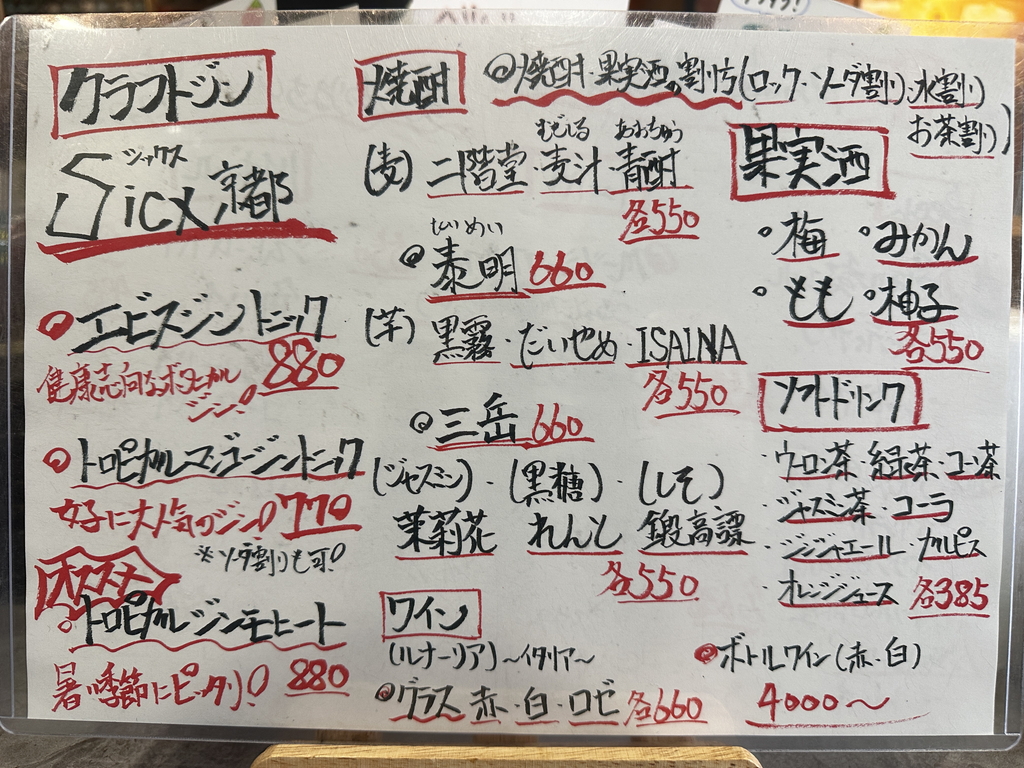 クラフトジン
シックス
Sicx京都
エビスジントニック
880
健康志向なボタニカル
ジン!
トロピカルマンゴージントニック
女子に大人気のジン! 770
※ソーダ割りも可!
オススメ
トロピカルジンモヒート
暑い季節にピッタリ! 880
焼酎
◎焼酎・果実酒の割り方(ロック・ソーダ割り・水割り
お茶割り)
むぎしる あおちゅう
(麦) 二階堂・麦汁・青酎
各550
たいめい
泰明 660
(芋) 黒霧・だいやめ・ISAINA
各550
三岳 660
(ジャスミン)・(黒糖)・(しそ)
茉莉花 れんと 鍛高譚
各550
ワイン
(ルナーリア)〜イタリア〜
グラス 赤・白・ロゼ 各660
ボトルワイン(赤・白)
4000〜
果実酒
梅 みかん
もも 柚子
各550
ソフトドリンク
・ウーロン茶・緑茶・コーン茶
・ジャスミン茶・コーラ
・ジンジャエール・カルピス
・オレンジジュース 各385